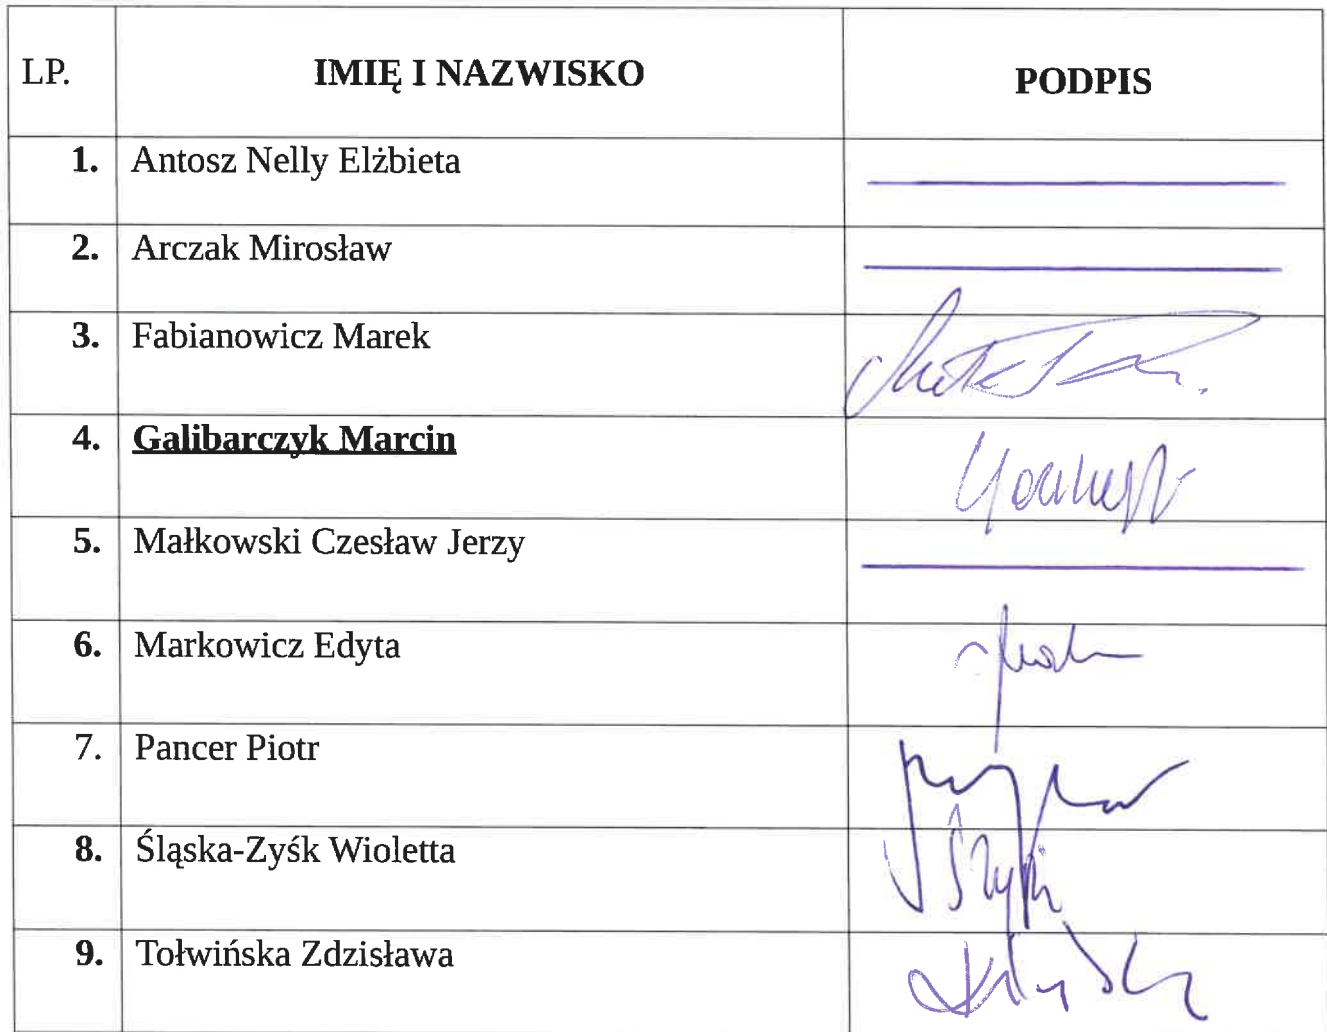 LP. IMIĘ I NAZWISKO PODPIS
1. Antosz Nelly Elżbieta
2. Arczak Mirosław
3. Fabianowicz Marek
4. Galibarczyk Marcin
5. Małkowski Czesław Jerzy
6. Markowicz Edyta
7. Pancer Piotr
8. Śląska-Zyśk Wioletta
9. Tołwińska Zdzisława